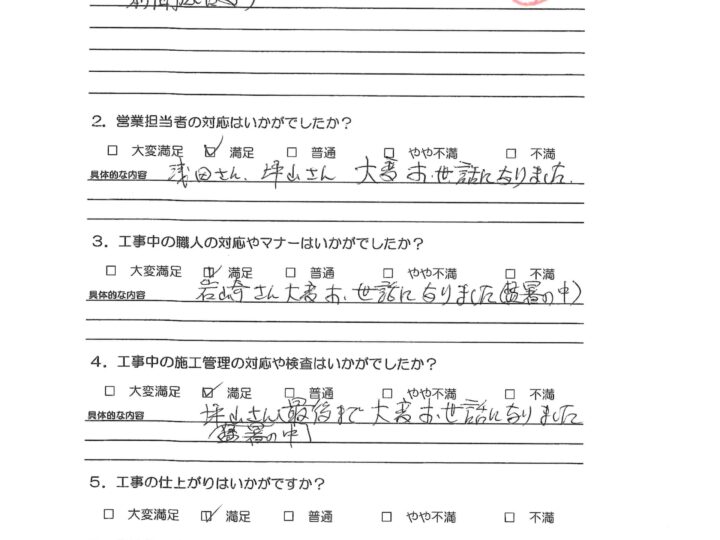 2．営業担当者の対応はいかがでしたか？
□ 大変満足 ☑ 満足 □ 普通 □ やや不満 □ 不満
具体的な内容 浅田さん、坪山さん 大変お世話になりました。
3．工事中の職人の対応やマナーはいかがでしたか？
□ 大変満足 ☑ 満足 □ 普通 □ やや不満 □ 不満
具体的な内容 岩崎さん大変お世話になりました(猛暑の中)
4．工事中の施工管理の対応や検査はいかがでしたか？
□ 大変満足 ☑ 満足 □ 普通 □ やや不満 □ 不満
具体的な内容 坪山さん最後まで大変お世話になりました
(猛暑の中)
5．工事の仕上がりはいかがですか？
□ 大変満足 ☑ 満足 □ 普通 □ やや不満 □ 不満